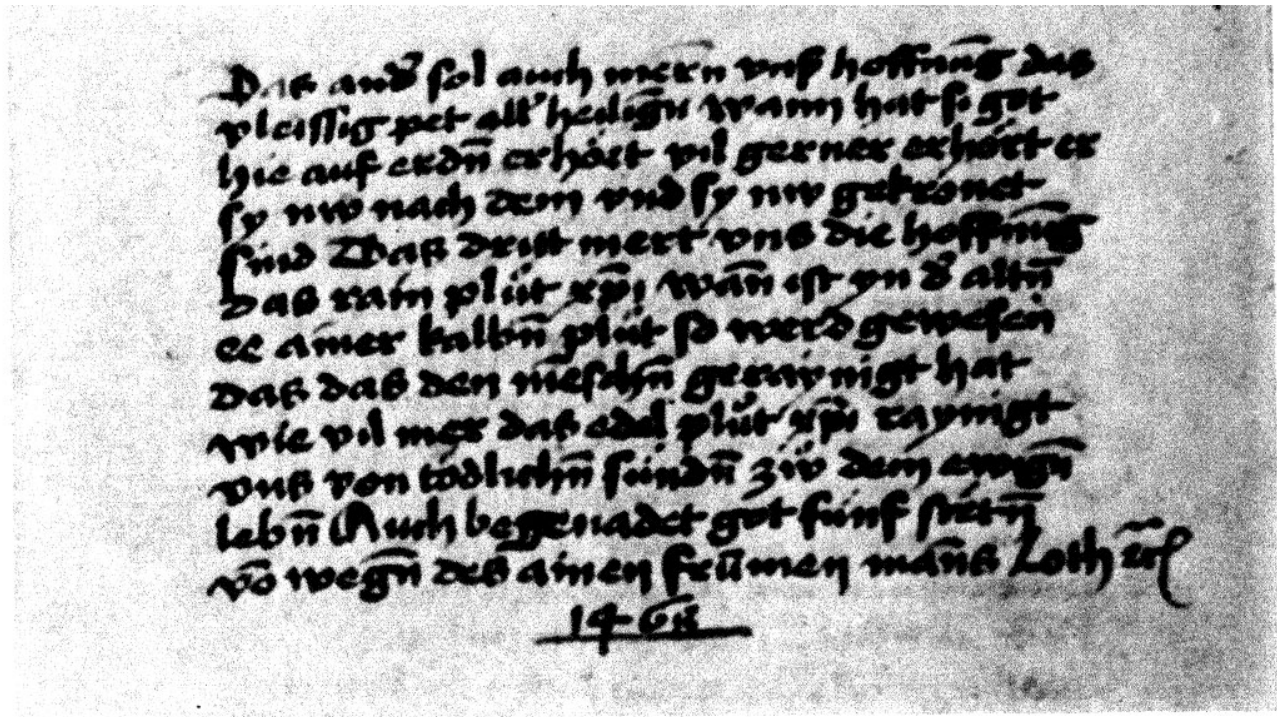 Das and̄ sol auch merñ vnß hoffnūg das
vleissig pet all' heiligñ wann hat si got
hie auf erdñ erhört vil gerner erhört er
sy nw nach dem vnd sy nw gekrönet
sind Das dritt mert vns die hoffnūg
das rain plüt xp̄i wañ ist yn d' altñ
ee ainer kalbñ plüt so werd gewesen
das das den mēschñ geraynigt hat
wie vil mer das edel plüt xp̄i raynigt
vns von tödlichñ sündñ zw dem ewigñ
lebñ Auch begenadet got fünf stetñ
vō wegñ des ainen frūmen mañs Loth